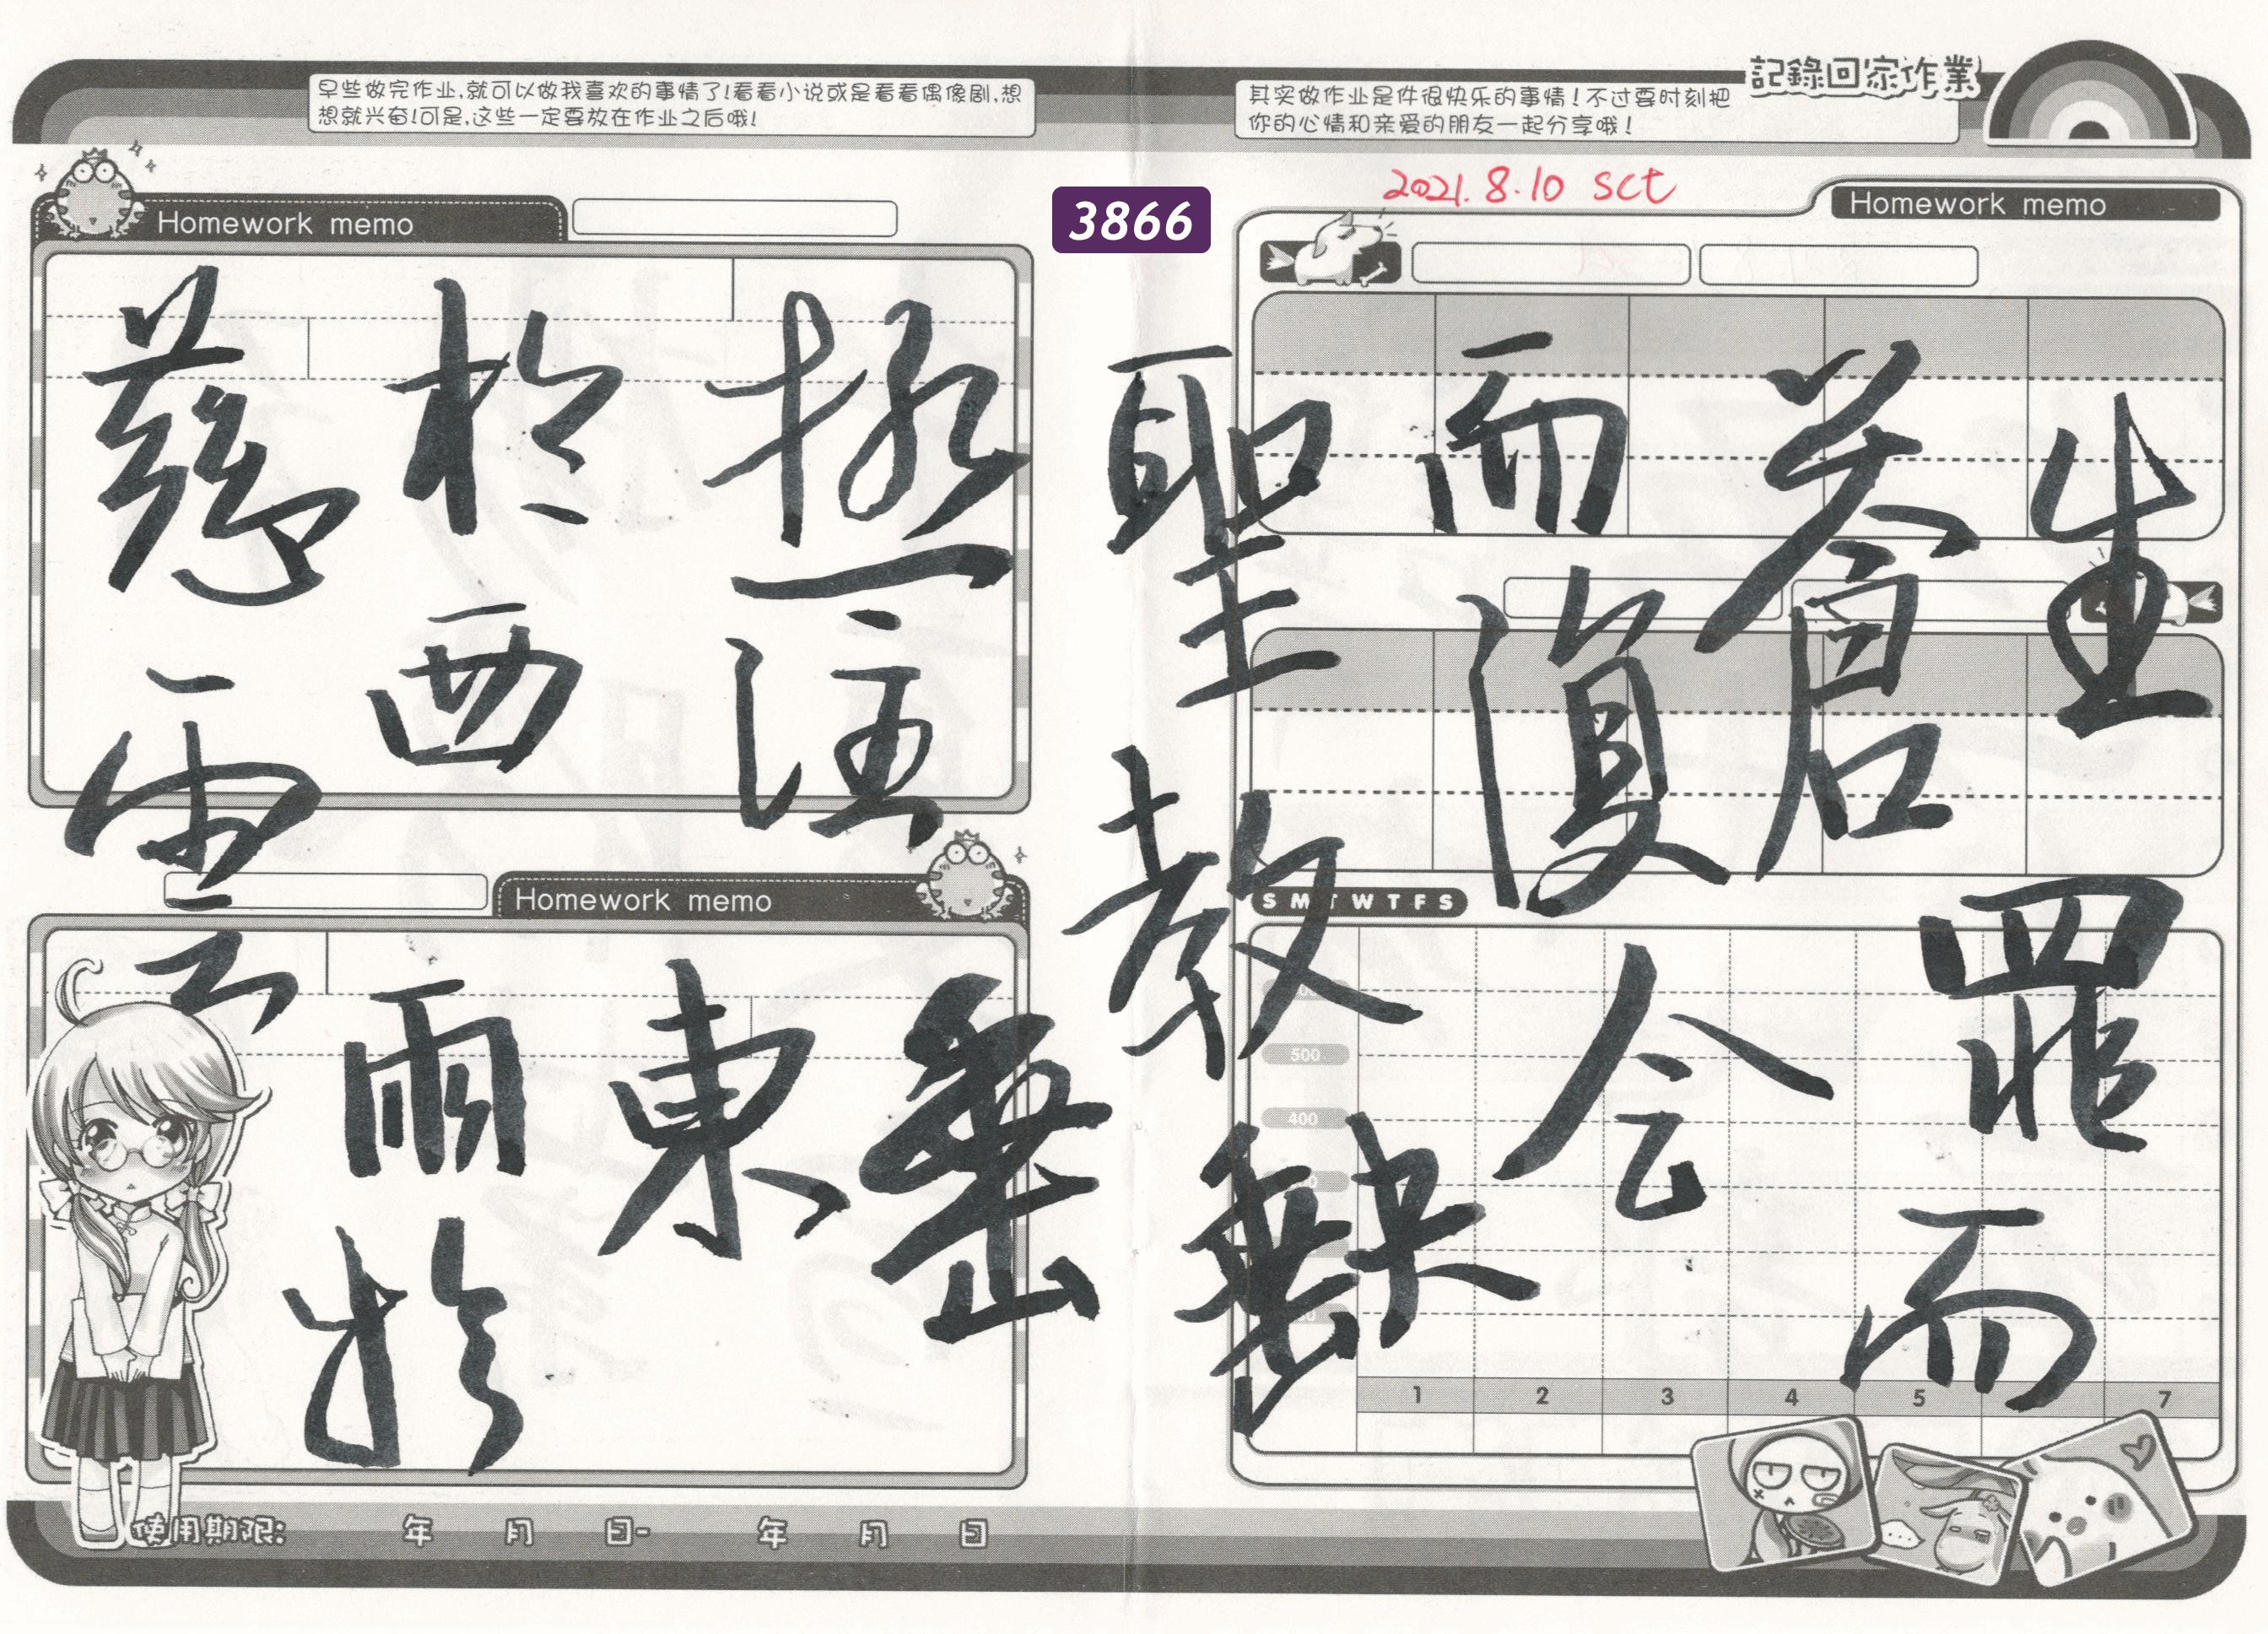 記錄回家作業
早些做完作业,就可以做我喜欢的事情了!看看小说或是看看偶像剧,想
想就兴奋!可是,这些一定要放在作业之后哦!
其实做作业是件很快乐的事情!不过要时刻把
你的心情和亲爱的朋友一起分享哦!
2021.8.10 sct
3866
Homework memo
Homework memo
Homework memo
慈雲
於西
極注
雨於
東垂
聖教缺
而復
蒼
生罪而
S M T W T F S
500
400
1 2 3 4 5 7
使用期限: 年 月 日- 年 月 日